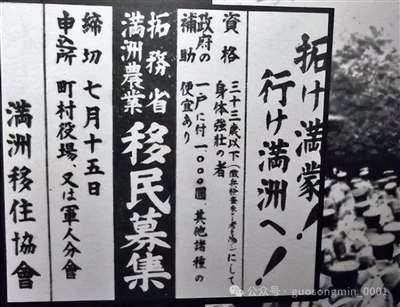 拓け満蒙！
行け満洲へ！
資格 三十三歳以下 にして
身体強壮の者
政府の補助 一戸に付一〇〇〇圓 其他諸種の
便宜あり
拓務省
満洲農業
移民募集
締切 七月十五日
申込所 町村役場、又は軍人分會
満洲移住協會
公众号 · guosongmin_0001